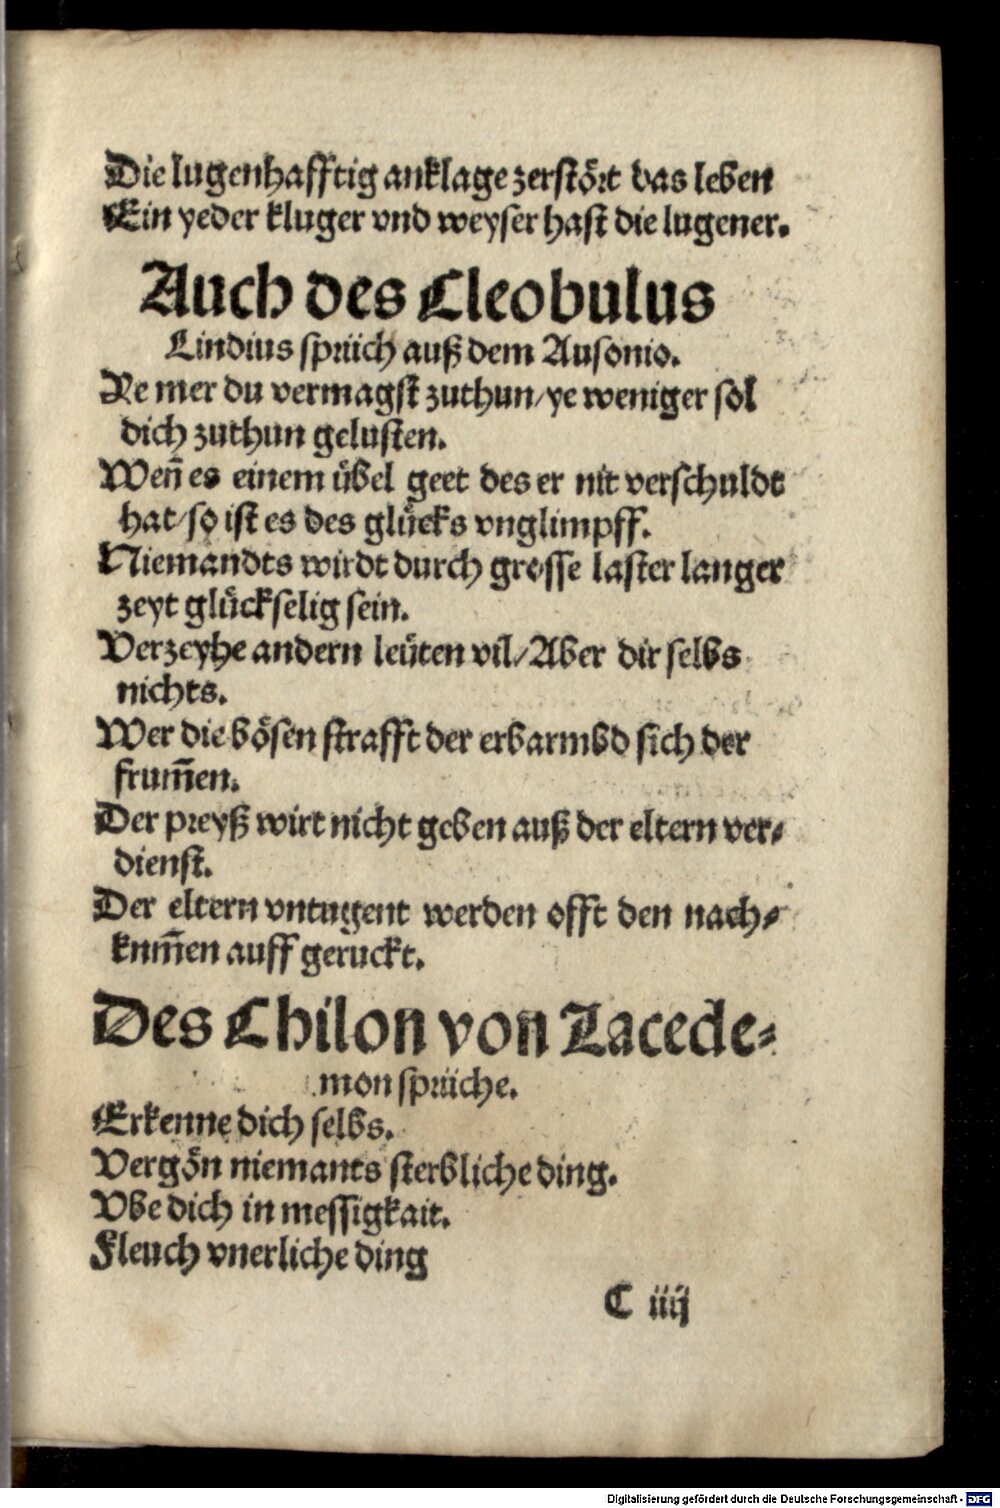 Die lugenhafftig anklage zerstört das leben
Ein yeder kluger vnd weyser hast die lugener.
Auch des Cleobulus
Lindius sprüch auß dem Ausonio.
Ye mer du vermagst zuthun/ye weniger sol
dich zuthun gelusten.
Weñ es einem übel geet des er nit verschuldt
hat/so ist es des glücks vnglimpff.
Niemandts wirdt durch grosse laster langer
zeyt glückselig sein.
Verzeyhe andern leüten vil/Aber dir selbs
nichts.
Wer die bösen strafft der erbarmbd sich der
frum̄en.
Der preyß wirt nicht geben auß der eltern ver⸗
dienst.
Der eltern vntugent werden offt den nach⸗
kum̄en auff geruckt.
Des Chilon von Lacede⸗
mon sprüche.
Erkenne dich selbs.
Vergön niemants sterbliche ding.
Vbe dich in messigkait.
Fleuch vnerliche ding
C iiij
Digitalisierung gefördert durch die Deutsche Forschungsgemeinschaft - DFG